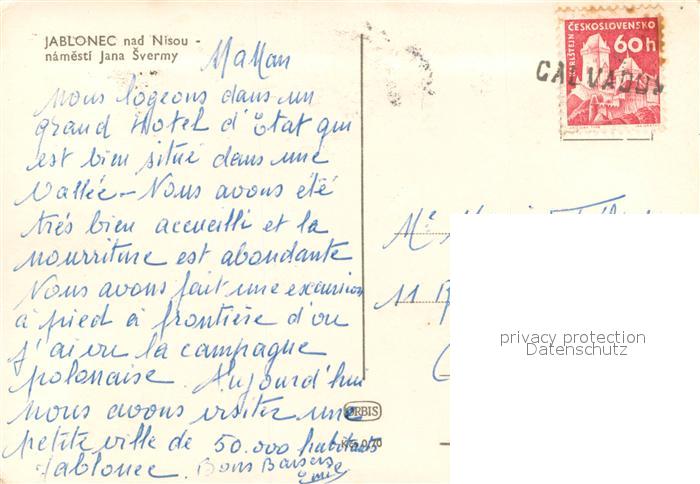 JABLONEC nad Nisou -
náměstí Jana Švermy
Maman
nous logeons dans un
grand Hotel d'Etat qui
est bien situé dans une
Vallée - Nous avons été
très bien accueilli et la
nourriture est abondante
Nous avons fait une excursion
à pied à frontière d'ou
j'ai vu la campagne
polonaise. Aujourd'hui
nous avons visitez une
petite ville de 50.000 habitants
Jablonec. Bons Baisers
ČESKOSLOVENSKO
KARLŠTEJN
60h
CALVADOS
Me
11
privacy protection
Datenschutz
ORBIS